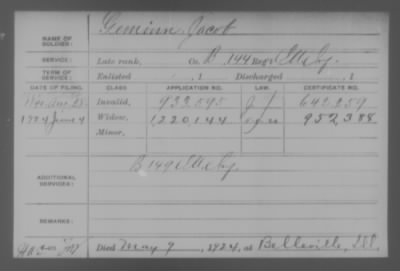 NAME OF SOLDIER: Geminn, Jacob
SERVICE: Late rank, Co. B, 144 Reg't Ills Inf.
TERM OF SERVICE: Enlisted , 1 Discharged , 1
DATE OF FILING. CLASS. APPLICATION NO. LAW. CERTIFICATE NO.
Invalid, 933,595 642,259
1924 June 4 Widow, 1,220,144 952388
Minor,
ADDITIONAL SERVICES: B 149 Ills Inf.
REMARKS:
Died May 9, 1924, at Belleville, Ill.